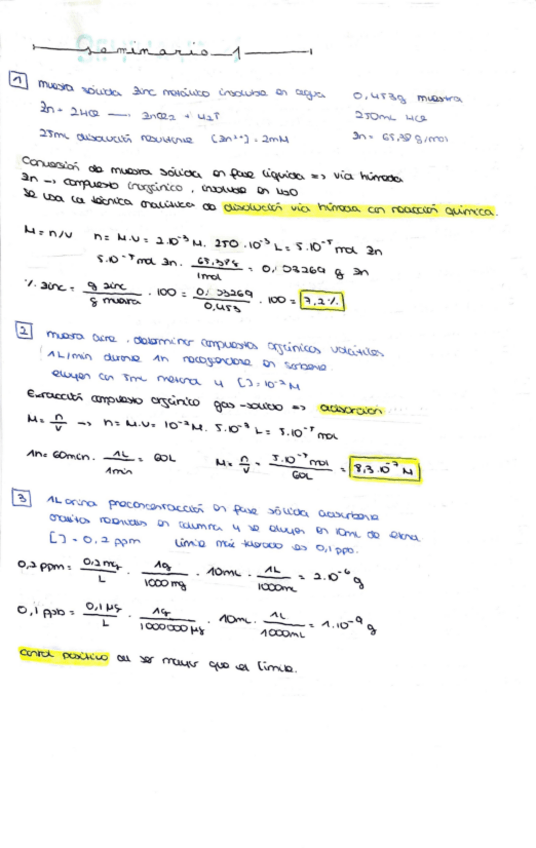 seminario 1
1 muestra sólida zinc metálico insoluble en agua 0,453g muestra
Zn + 2HCl → ZnCl2 + H2↑ 250mL HCl
25mL disolución resultante [Zn2+] = 2mM Zn = 65,38 g/mol
Conversión de muestra sólida en fase líquida => vía húmeda
Zn → compuesto inorgánico, insoluble en H2O
Se usa la técnica analítica de disolución vía húmeda con reacción química.
M = n/V n = M.V = 2.10⁻³ M. 250.10⁻³ L = 5.10⁻⁴ mol Zn
5.10⁻⁴ mol Zn. 65,38g / 1mol = 0,03269 g Zn
% zinc = g zinc / g muestra . 100 = 0,03269 / 0,453 . 100 = 7,2%
2 muestra aire, determinar compuestos orgánicos volátiles
1L/min durante 1h recogiéndose en sorbente
eluyen con 5mL metanol y [ ] = 10⁻² M
Extracción compuesto orgánico gas-sólido => adsorción
M = n/V → n = M.V = 10⁻² M. 5.10⁻³ L = 5.10⁻⁵ mol
1h = 60min. 1L / 1min = 60L M = n/V = 5.10⁻⁵ mol / 60L = 8,3.10⁻⁷ M
3 1L orina preconcentración en fase sólida adsorbente
analitos retenidos en columna y se eluyen en 10mL de
[ ] = 0,2 ppm Límite más tolerado es 0,1 ppb.
0,2 ppm = 0,2 mg / L . 1g / 1000 mg . 10mL . 1L / 1000mL = 2.10⁻⁶ g
0,1 ppb = 0,1 µg / L . 1g / 1000000 µg . 10mL . 1L / 1000mL = 1.10⁻⁹ g
control positivo al ser mayor que el límite.